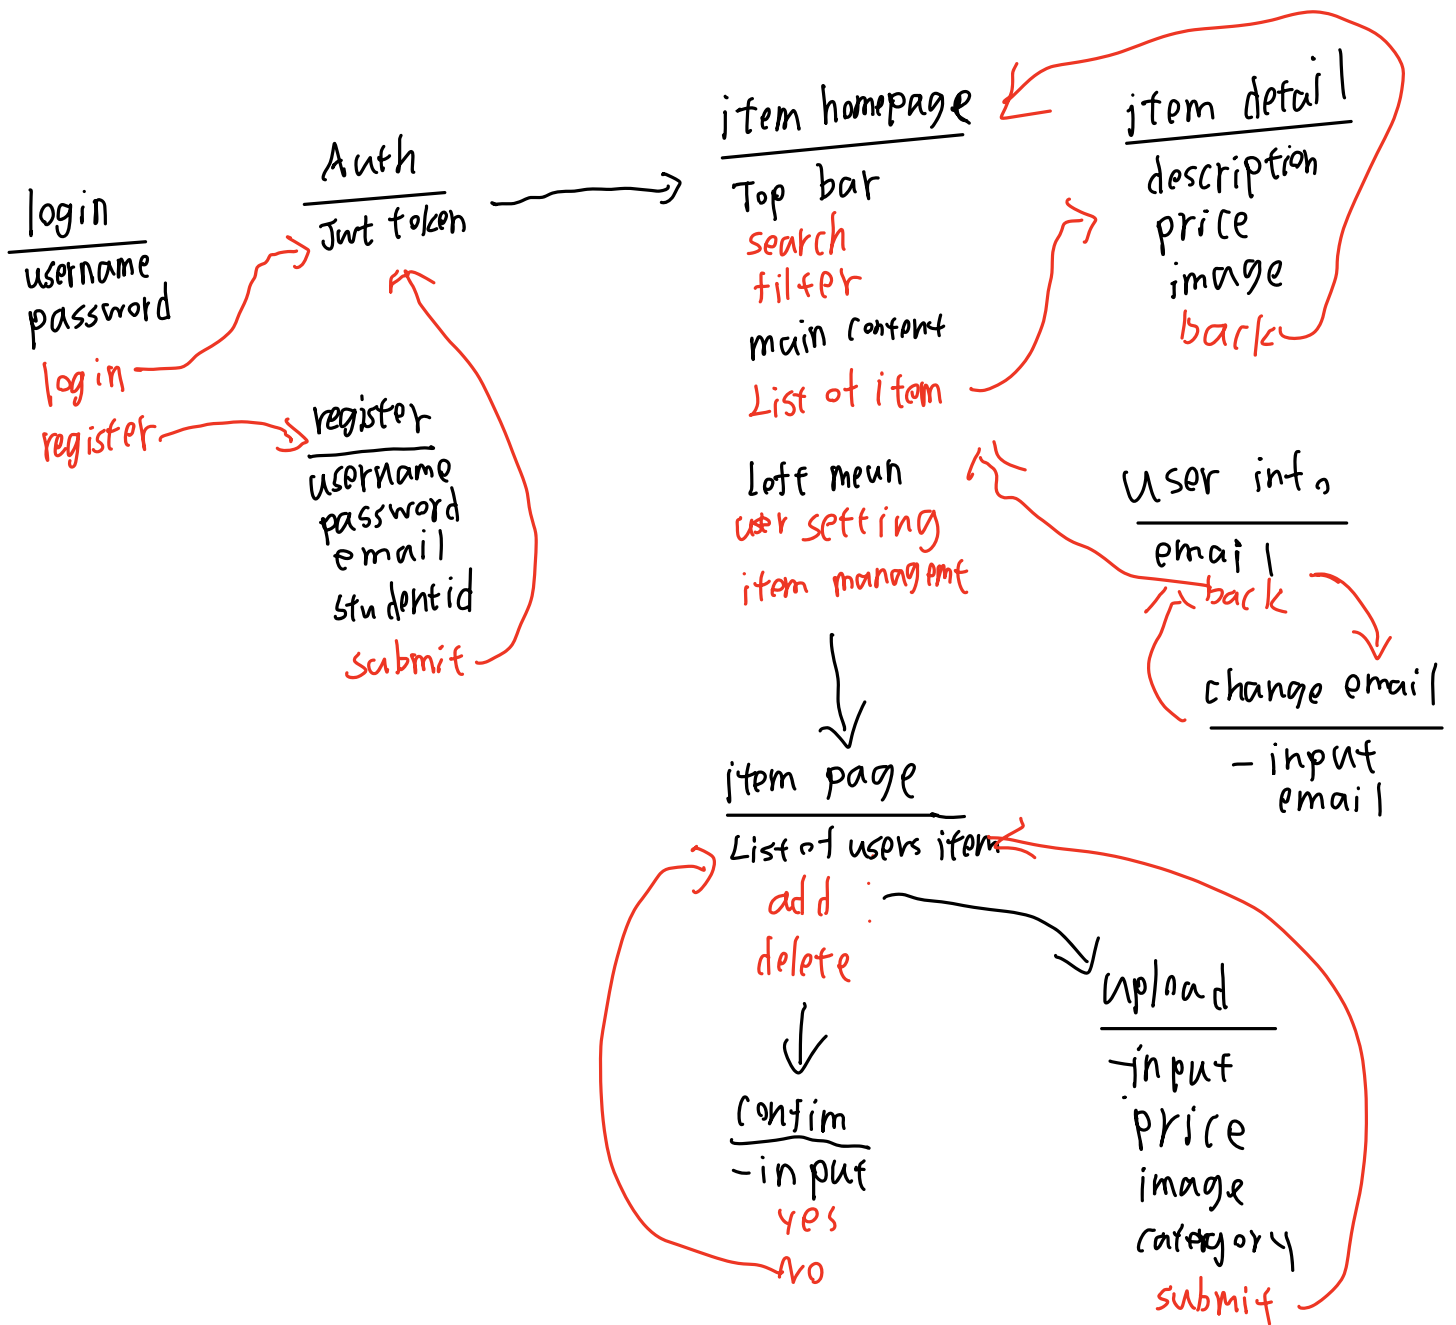 login
username
password
login
register
Auth
Jwt token
register
username
password
email
studentid
submit
item homepage
Top bar
search
filter
main content
List of item
left meun
user setting
item managemt
item detail
description
price
image
back
user info
email
back
change email
- input
email
item page
List of users item
add :
delete
confim
- input
yes
NO
upload
- input
price
image
category
submit